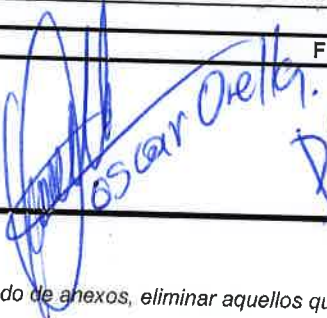 F
oscar Orella.
do de anexos, eliminar aquellos qu